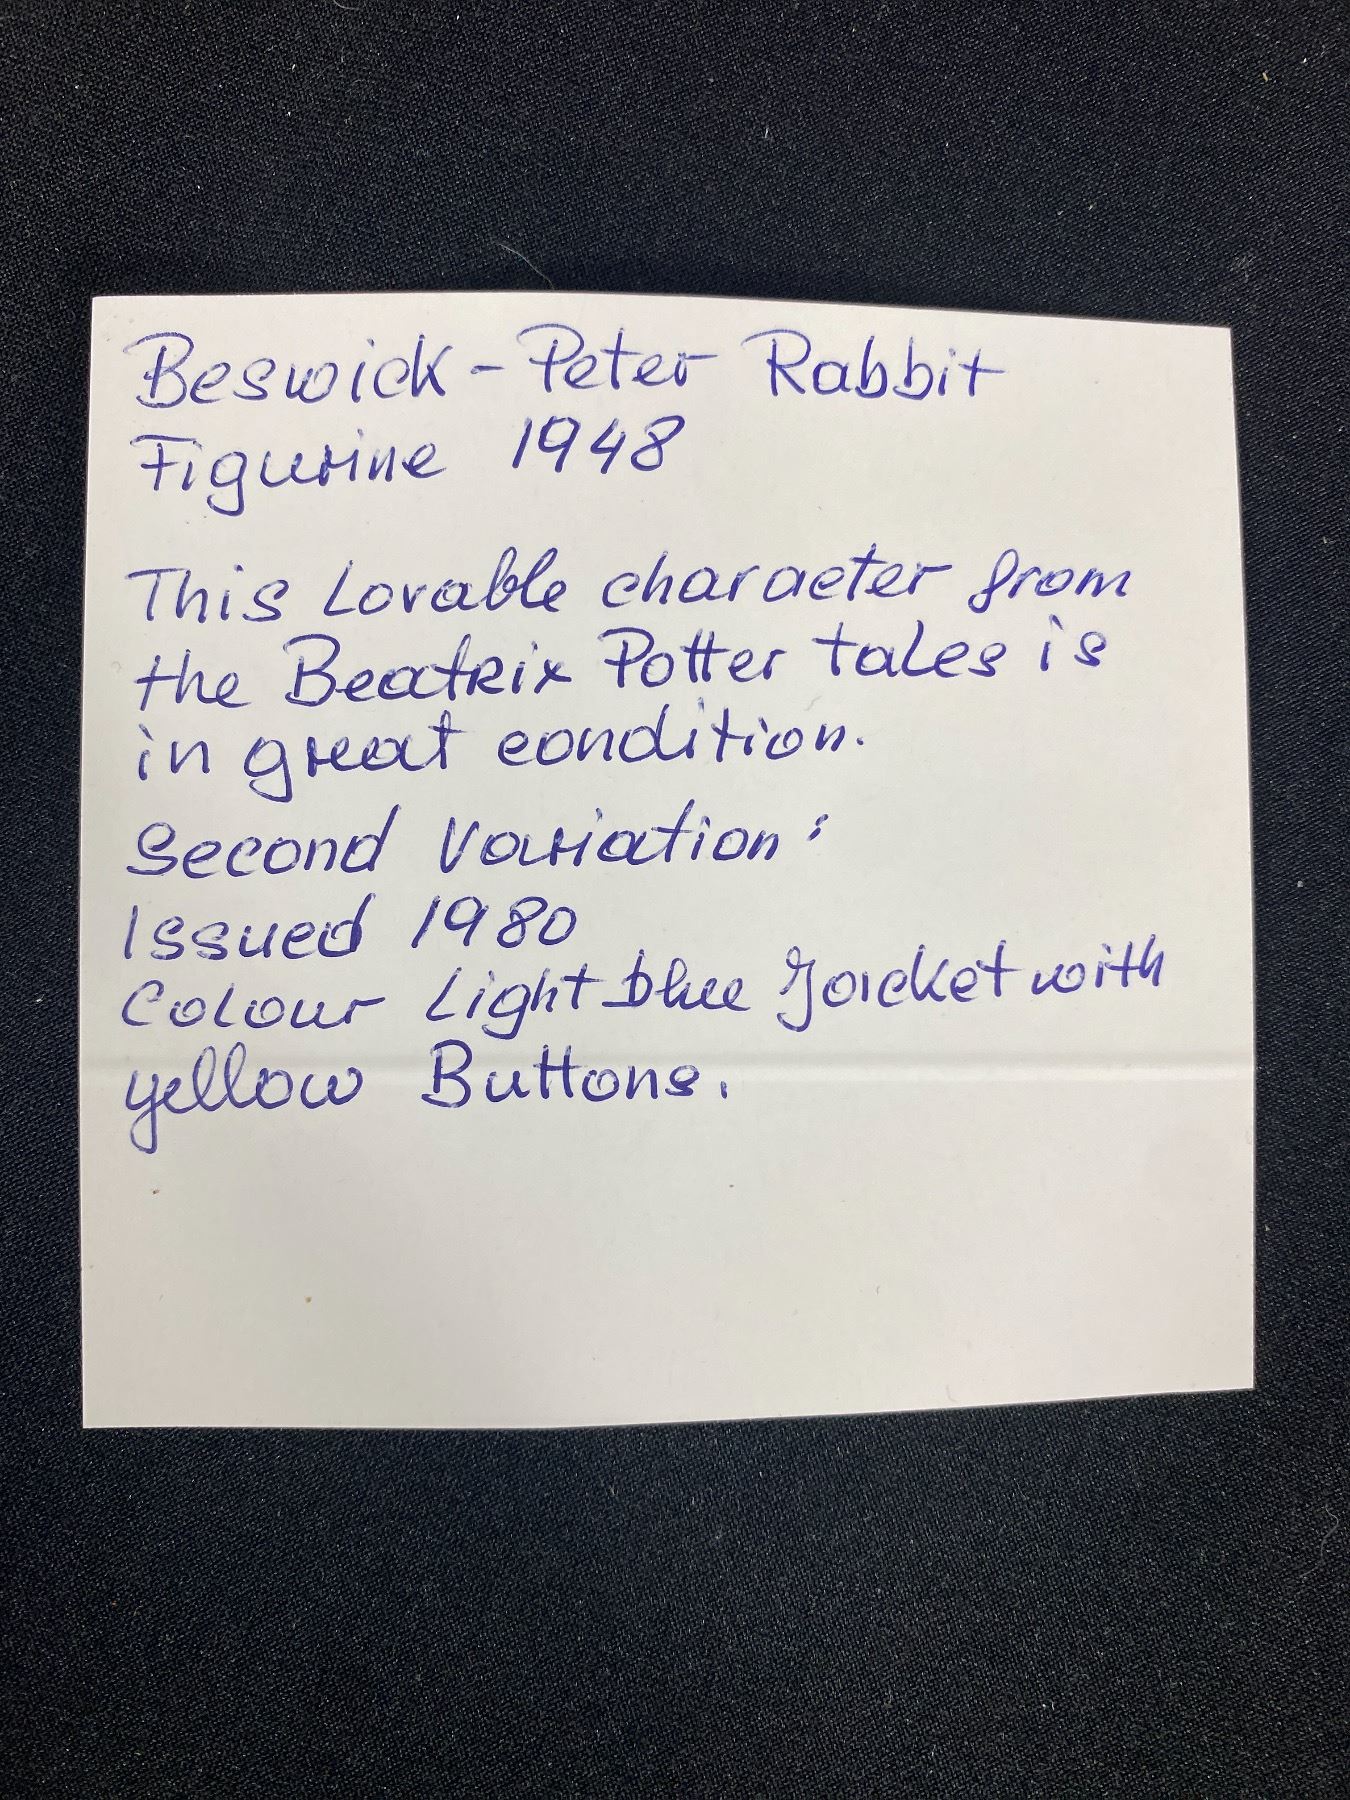 Beswick - Peter Rabbit
Figurine 1948
This Lovable character from
the Beatrix Potter tales is
in great condition.
Second Variation:
Issued 1980
Colour Light blue Jacket with
yellow Buttons.